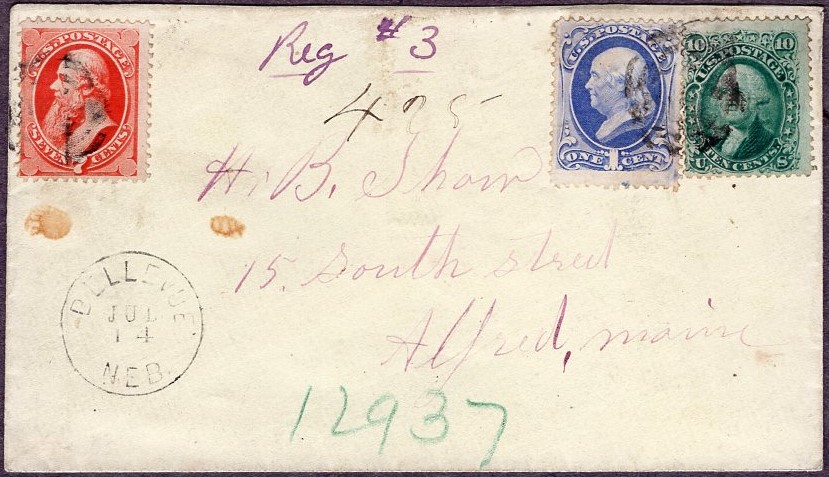 Reg #3
425
U.S. POSTAGE
SEVEN 7 CENTS
U.S. POSTAGE
ONE 1 CENT
10 U.S. POSTAGE 10
TEN CENTS U.S.
H. B. Shaw
15. South street
Alfred, maine
BELLEVUE
JUL
14
NEB.
12937